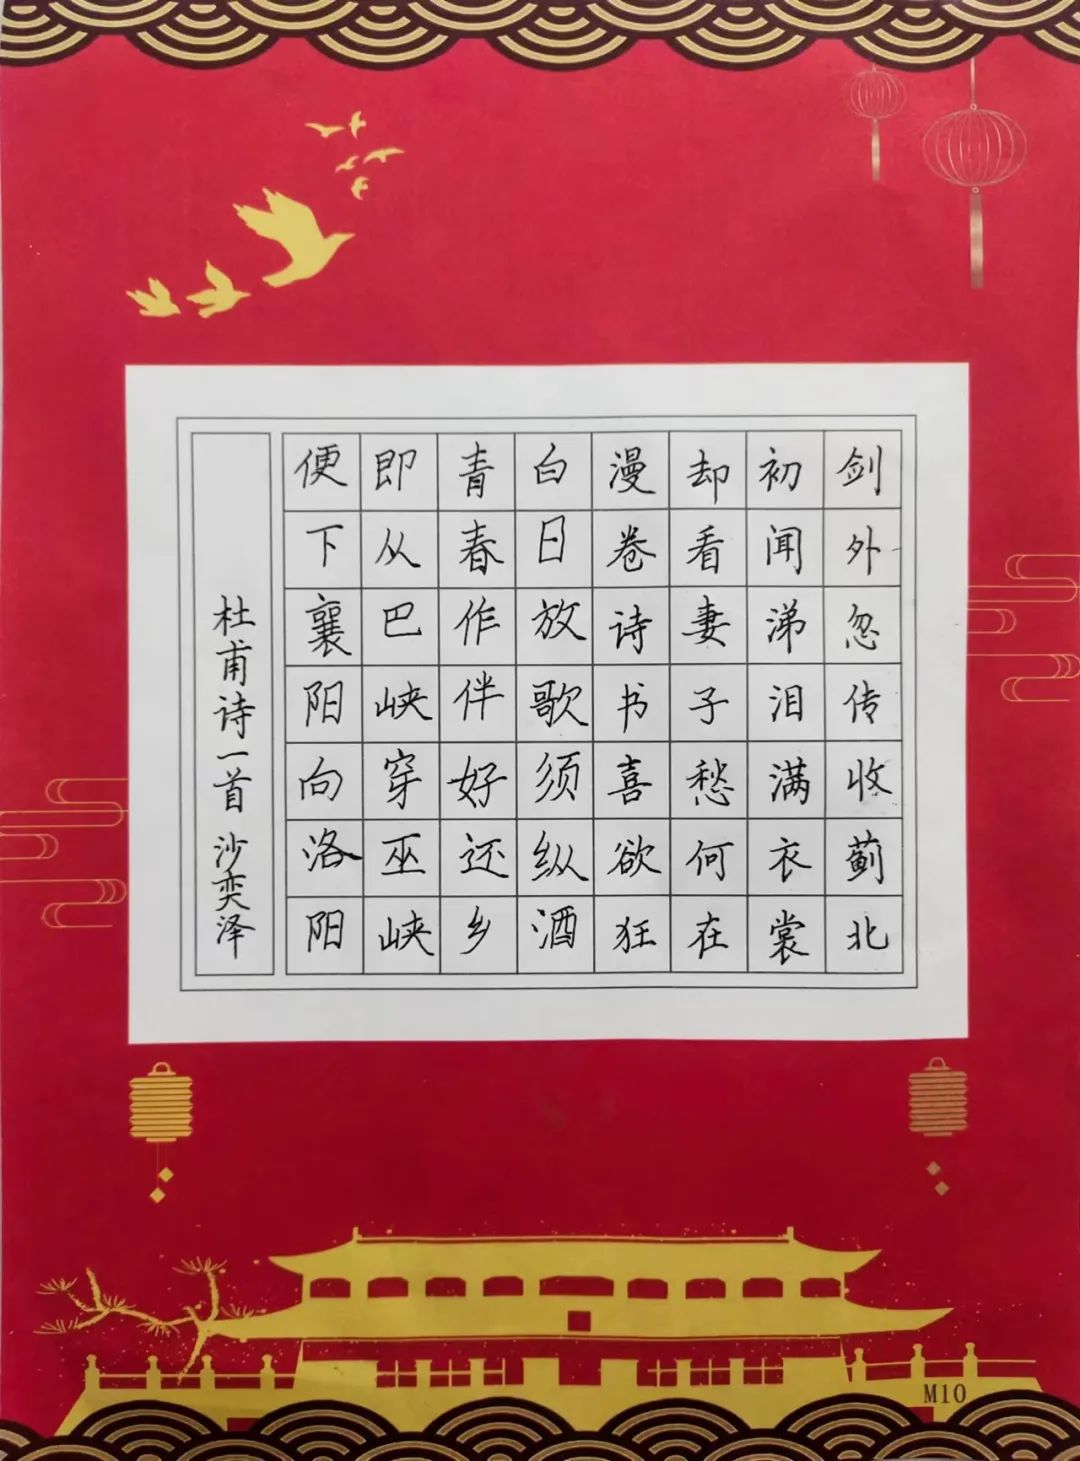 剑外忽传收蓟北
初闻涕泪满衣裳
却看妻子愁何在
漫卷诗书喜欲狂
白日放歌须纵酒
青春作伴好还乡
即从巴峡穿巫峡
便下襄阳向洛阳
杜甫诗一首 沙奕泽
M10